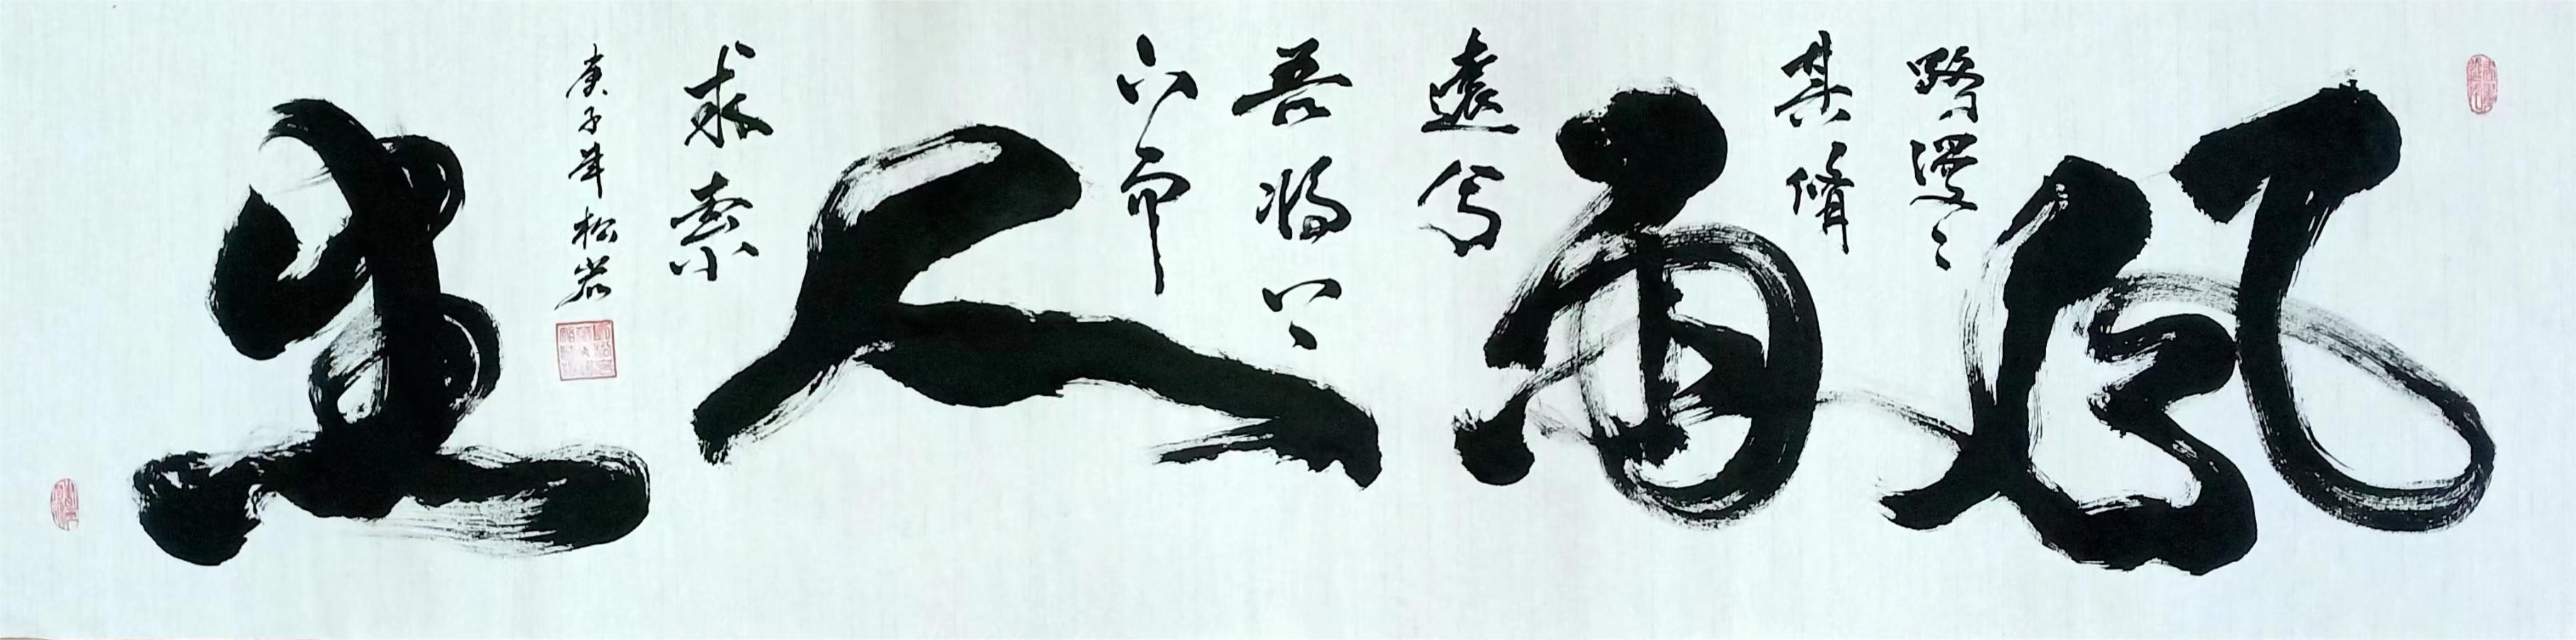 风雨人生
路漫々
其修
远兮
吾将上
下而
求索
庚子年松岩